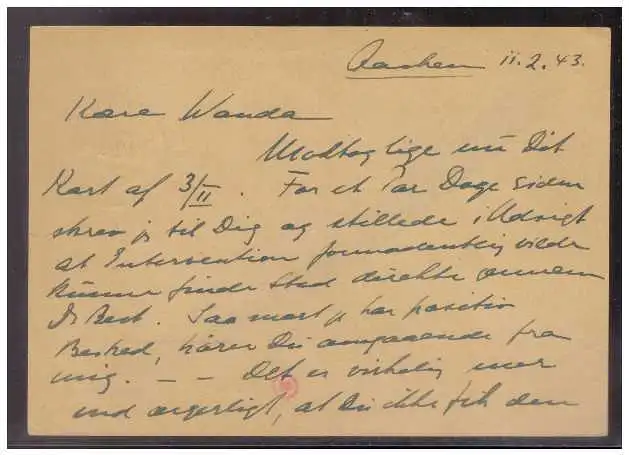 Aachen 11.2.43.
Kære Wanda
Modtog lige nu Dit
Kort af 3/II. For et Par Dage siden
skrev jeg til Dig og stillede i Udsigt
at Intervention formodentlig vilde
kunne finde Sted direkte gennem
Dr Best. Saa snart jeg har positiv
Besked, hører Du omgaaende fra
mig. — — Det er virkelig mer
end ærgerligt, at Du ikke fik den